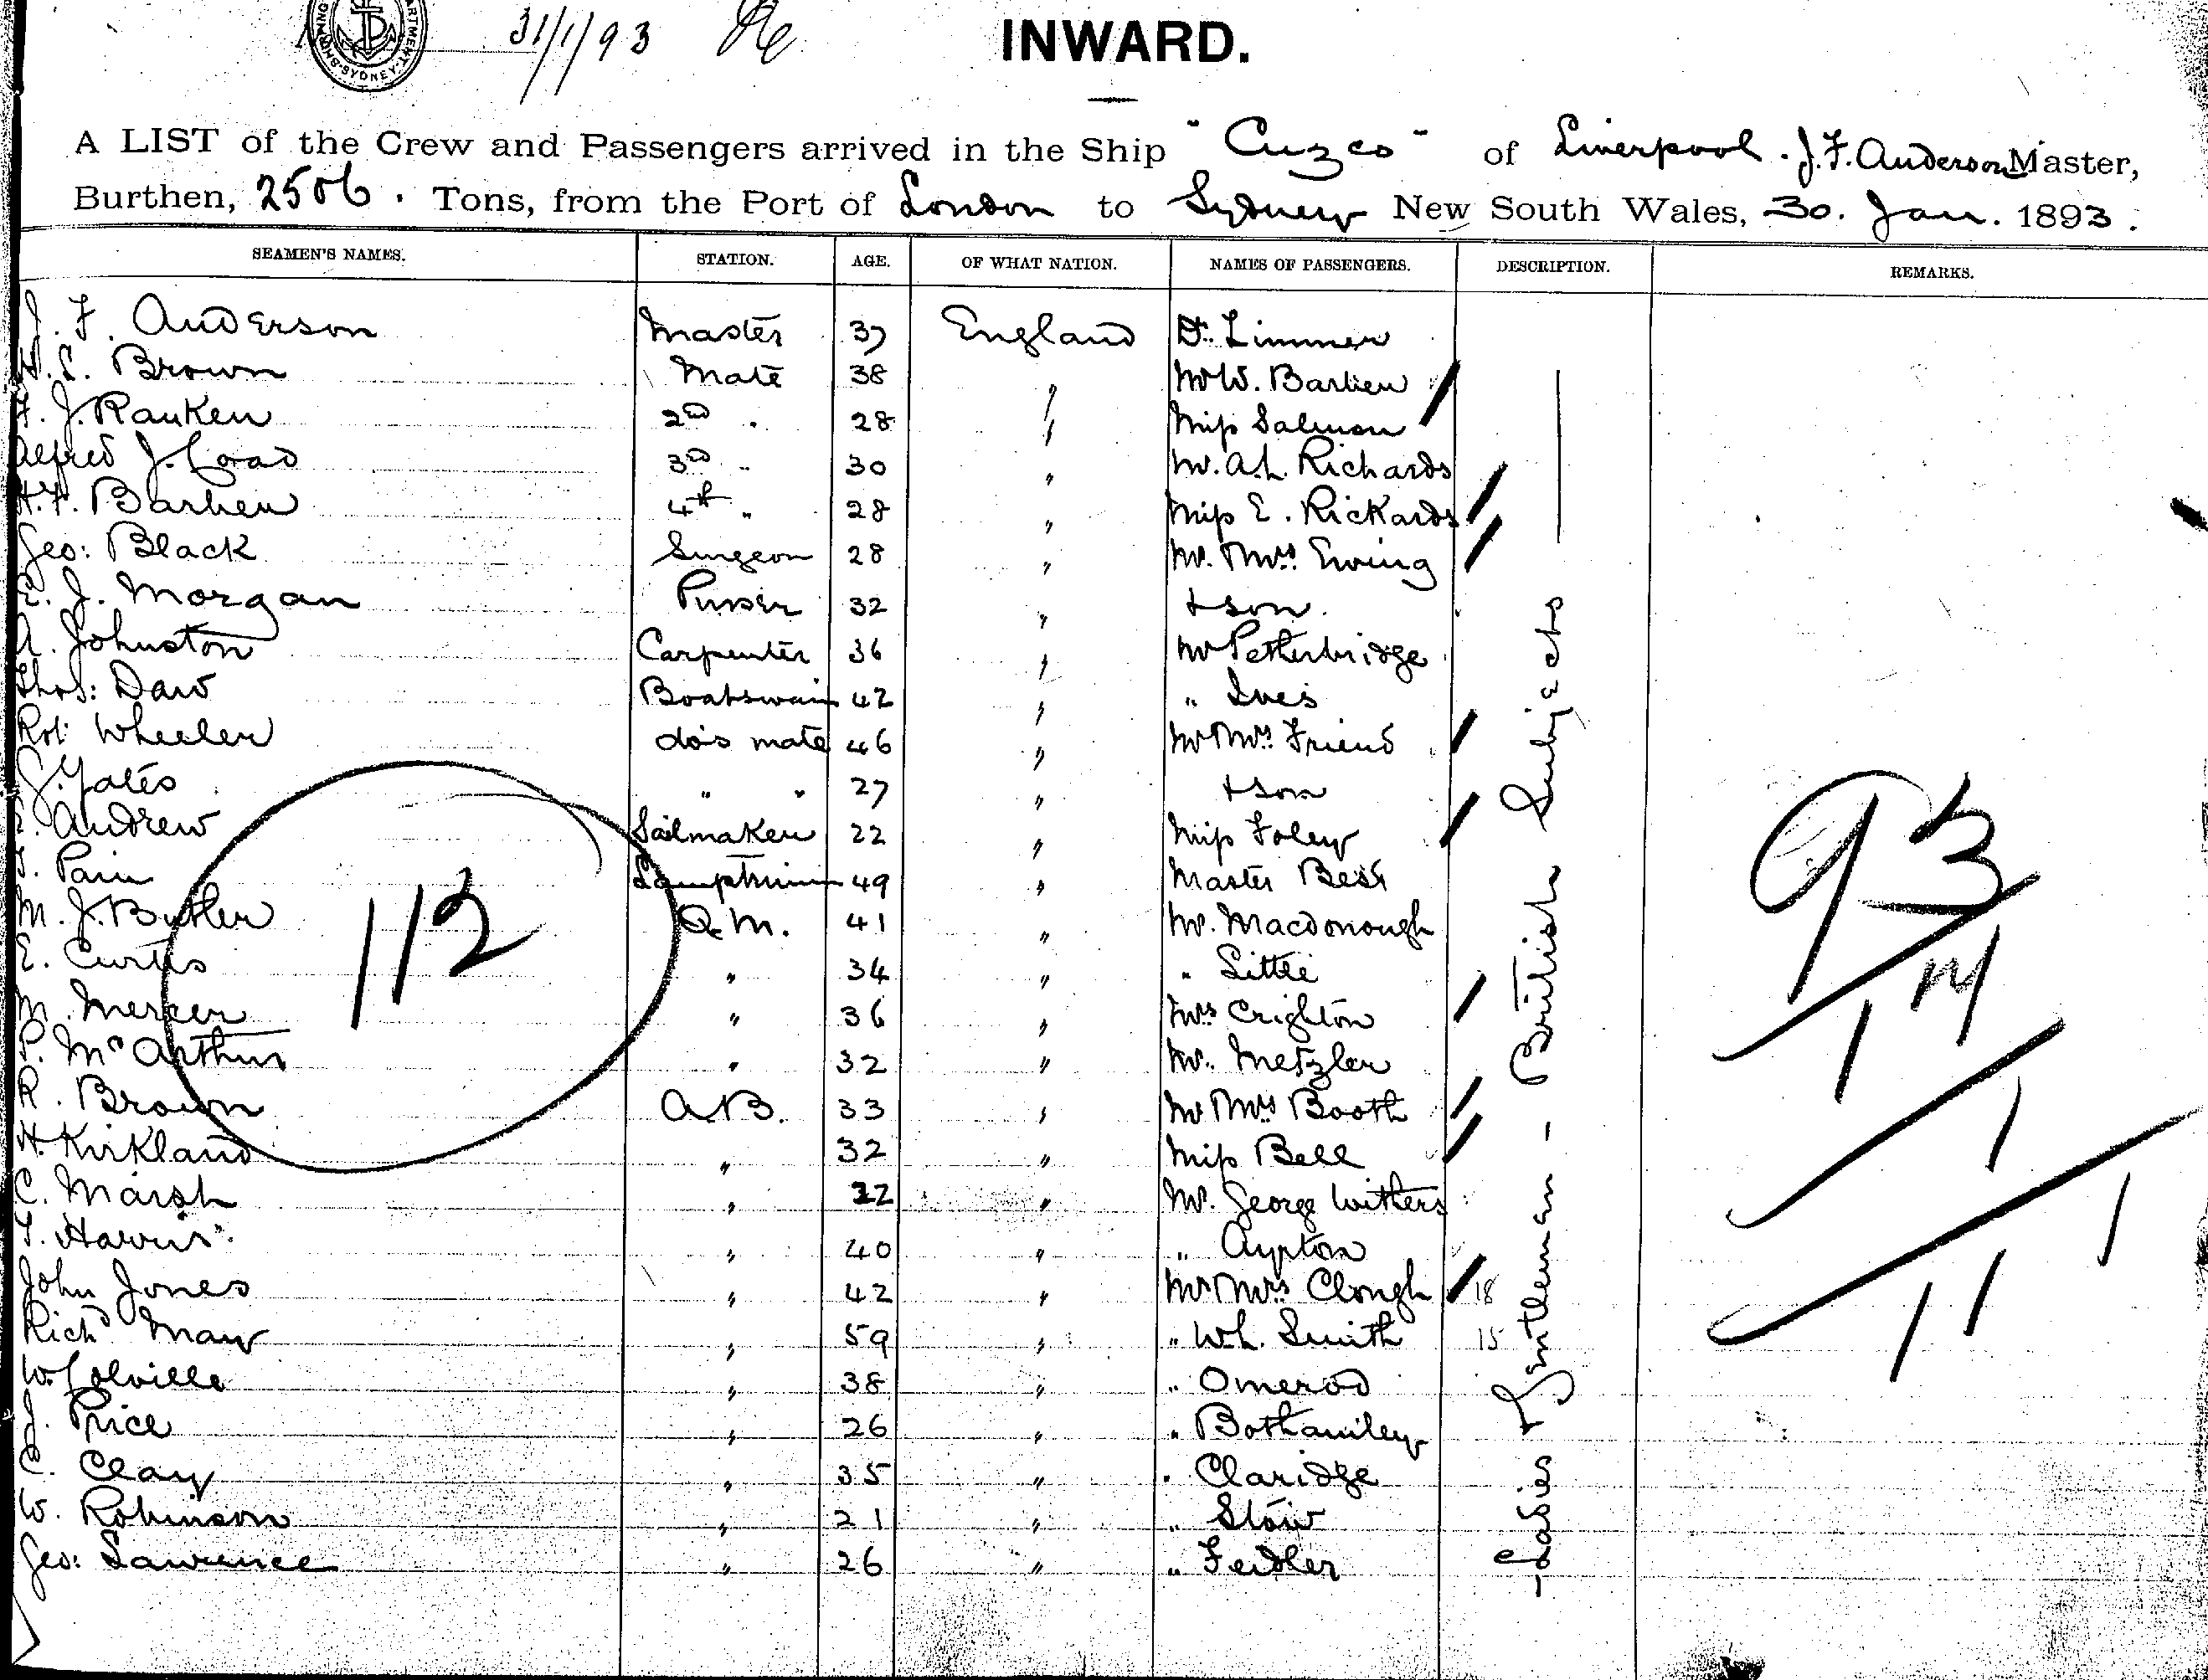 31/1/93
INWARD.
A LIST of the Crew and Passengers arrived in the Ship "Cuzco" of Liverpool. J. F. Anderson Master,
Burthen, 2506. Tons, from the Port of London to Sydney New South Wales, 30. Jan. 1893.
SEAMEN'S NAMES. STATION. AGE. OF WHAT NATION. NAMES OF PASSENGERS. DESCRIPTION. REMARKS.
J. F. Anderson Master 37 England Dr. Limmer
Brown Mate 38 " Mr W. Barlien
J. Ranken 2nd " 28 " Miss Salmon
Alfred J. Coad 3rd " 30 " Mr. A. L. Richards
H. F. Barlien 4th " 28 " Miss E. Rickards
Geo: Black Surgeon 28 " Mr. Mrs. Ewing
E. J. Morgan Purser 32 " + son.
A. Johnston Carpenter 36 " Mr Petherbridge
Thos: Daw Boatswain 42 " " Ives
Robt Wheeler do's mate 46 " Mr Mrs. Friend
Yates " " 27 " + son
Andrew Sailmaker 22 " Miss Foley
Pain Lamptrimmer 49 " Master Best
M. J. Butler Q.M. 41 " Mr. Macdonough
E. Curtis " 34 " " Little
M. Mercer " 36 " Mrs Crighton
P. McArthur " 32 " Mr. Metzler
R. Brown A.B. 33 " Mr Mrs Booth
H. Kirkland " 32 " Miss Bell
C. Marsh " 22 " Mr. George Withers
T. Harris " 40 " "
John Jones " 42 " Mr Mrs Clough 18
Richd May " 59 " " W. L. Smith 15
W. Colville " 38 " " Omerod
J. Price " 26 " " Bothamley
C. Clay " 35 " " Claridge
W. Robinson " 21 " " Stow
Geo: Lawrence " 26 " " Feidler
- Ladies + Gentlemen - British Subjects
112
93